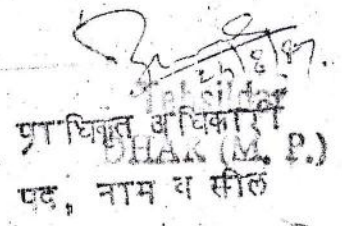 Tehsildar
प्राधिकृत अधिकारी
DHAR (M. P.)
पद, नाम व सील